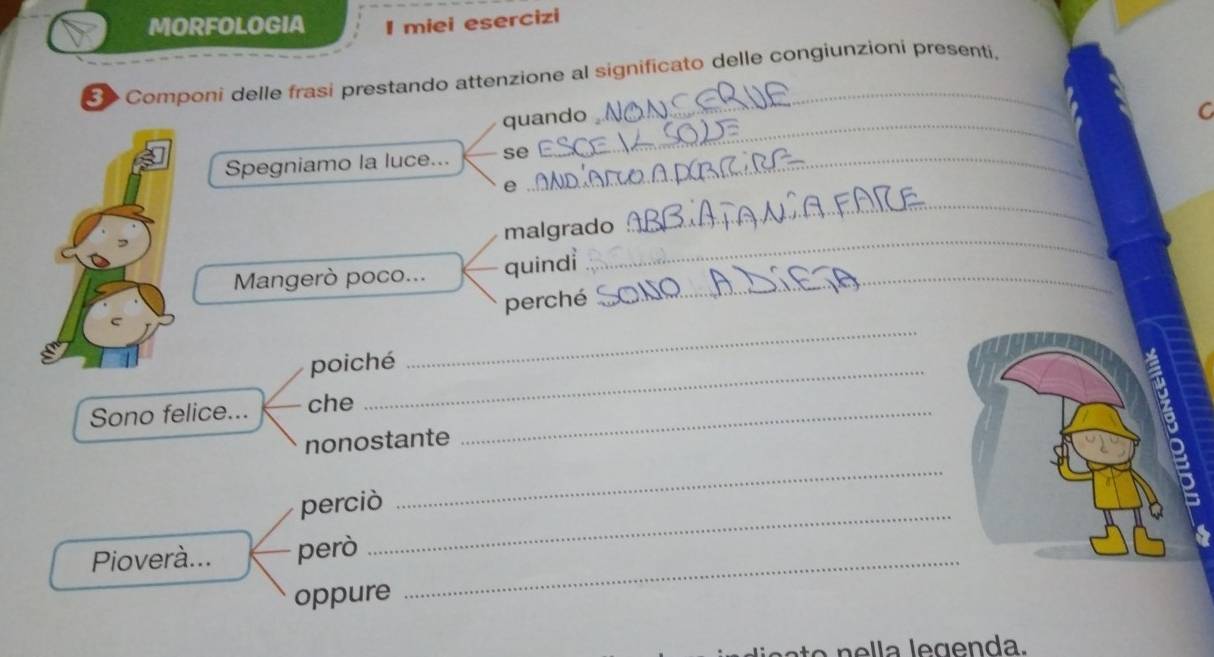 MORFOLOGIA I miei esercizi
3 Componi delle frasi prestando attenzione al significato delle congiunzioni presenti.
quando NON CERVE
Spegniamo la luce... se ESCE IL SOLE
e
malgrado ABBIA FARE
Mangerò poco... quindi
perché SONO A DIETA
poiché
Sono felice... che
nonostante
perciò
Pioverà... però
oppure
nella legenda.